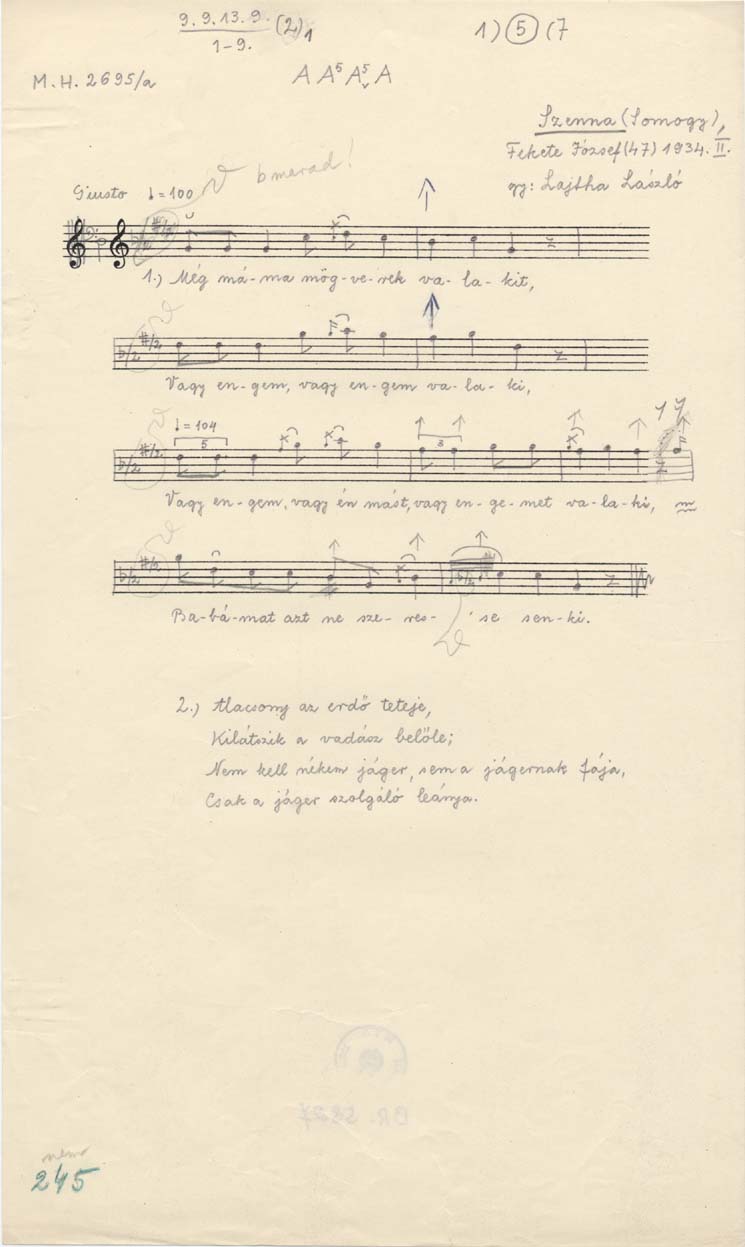 9. 9. 13. 9. (2)₁
1-9.
1) 5 (7
M. H. 2695/a
A A⁵ A⁵ᵥ A
Szenna (Somogy),
Fekete József (47) 1934. II.
gy: Lajtha László
b marad!
Giusto ♩ = 100
1.) Még má- ma mög- ve- rek va- la- kit,
Vagy en- gem, vagy en- gem va- la- ki,
♩ = 104
5
3
Vagy en- gem, vagy én mást, vagy en- ge- met va- la- ki,
Ba- bá- mat azt ne sze- res- se sen- ki.
2.) Alacsony az erdő teteje,
Kilátszik a vadász belőle;
Nem kell nékem jáger, sem a jágernak fája,
Csak a jáger szolgáló leánya.
nem
245